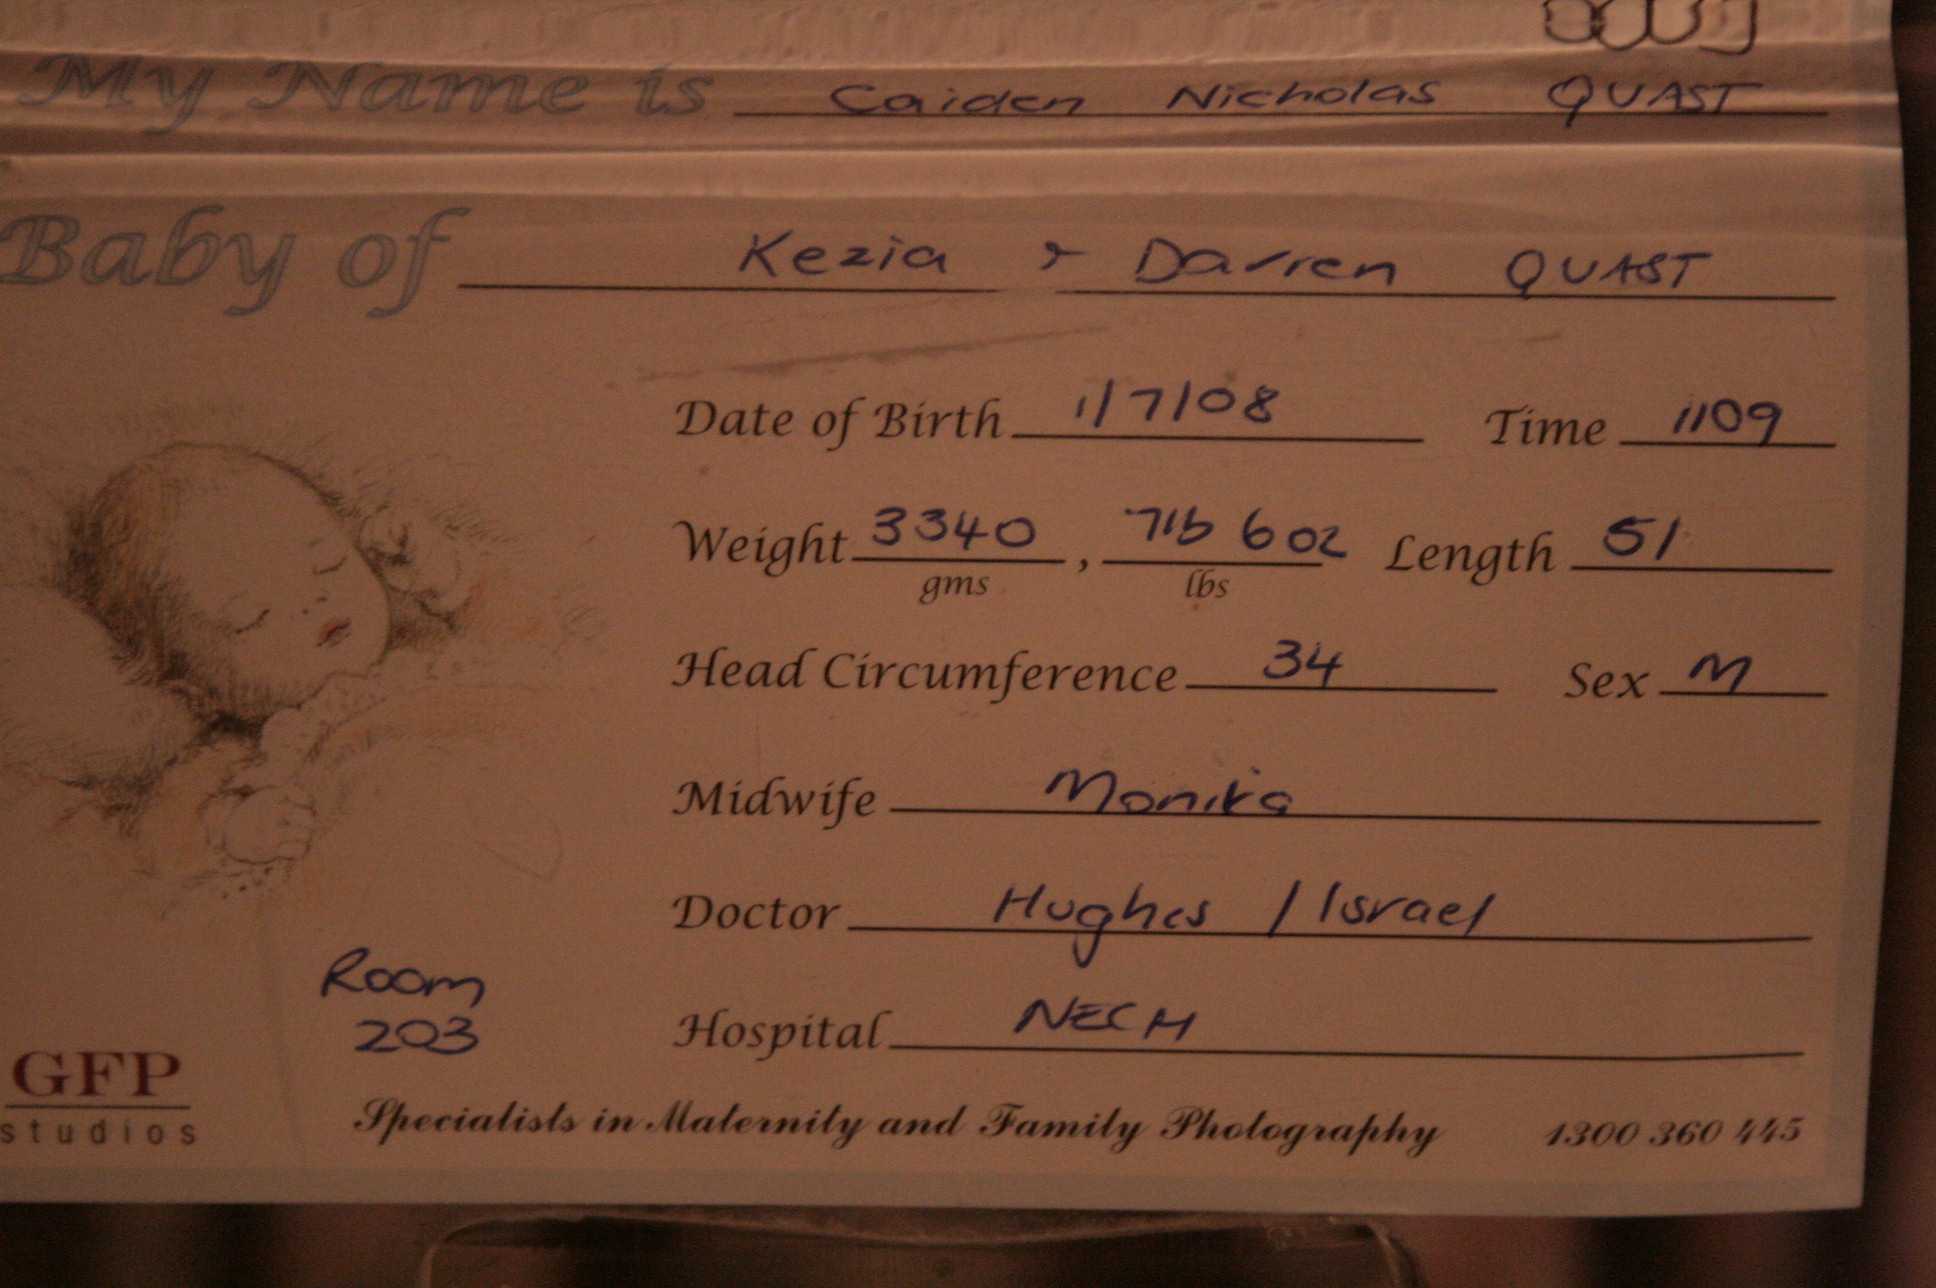 My Name is Caiden Nicholas QUAST
Baby of Kezia & Darren QUAST
Date of Birth 1/7/08 Time 1109
Weight 3340 gms , 7lb 6oz lbs Length 51
Head Circumference 34 Sex M
Midwife Monika
Doctor Hughes / Israel
Room
203
Hospital NECH
GFP
studios
Specialists in Maternity and Family Photography 1300 360 445